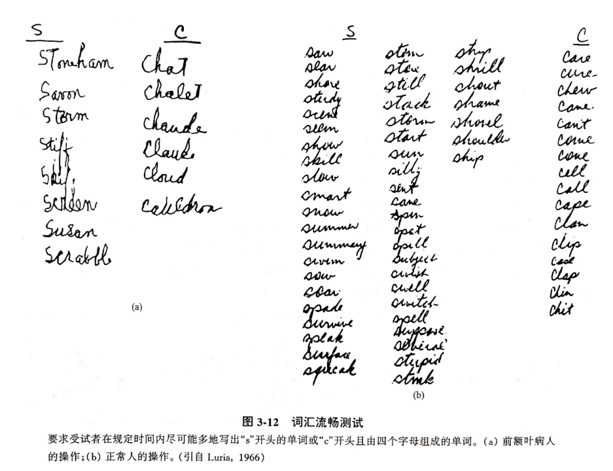 S
C
Stoneham
Saxon
Storm
Stiff
Screen
Susan
Scrabble
Chat
Chalet
Chaude
Claude
Cloud
Cauldron
(a)
S
saw
slar
shore
sturdy
seem
show
skill
slow
smart
snow
summer
summary
swim
sow
soar
spade
survive
speak
surface
squeak
stem
stew
still
stack
storm
start
sun
silly
sent
cane
spin
spot
spill
subject
swish
swell
switch
spell
suppose
several
stupid
stink
strip
shrill
shout
shame
shovel
shoulder
ship
C
care
cure
chew
cane
can't
come
cone
cell
call
cape
clan
clip
case
clap
chin
chit
(b)
图 3-12 词汇流畅测试
要求受试者在规定时间内尽可能多地写出“s”开头的单词或“c”开头且由四个字母组成的单词。(a) 前额叶病人
的操作;(b) 正常人的操作。(引自 Luria, 1966)